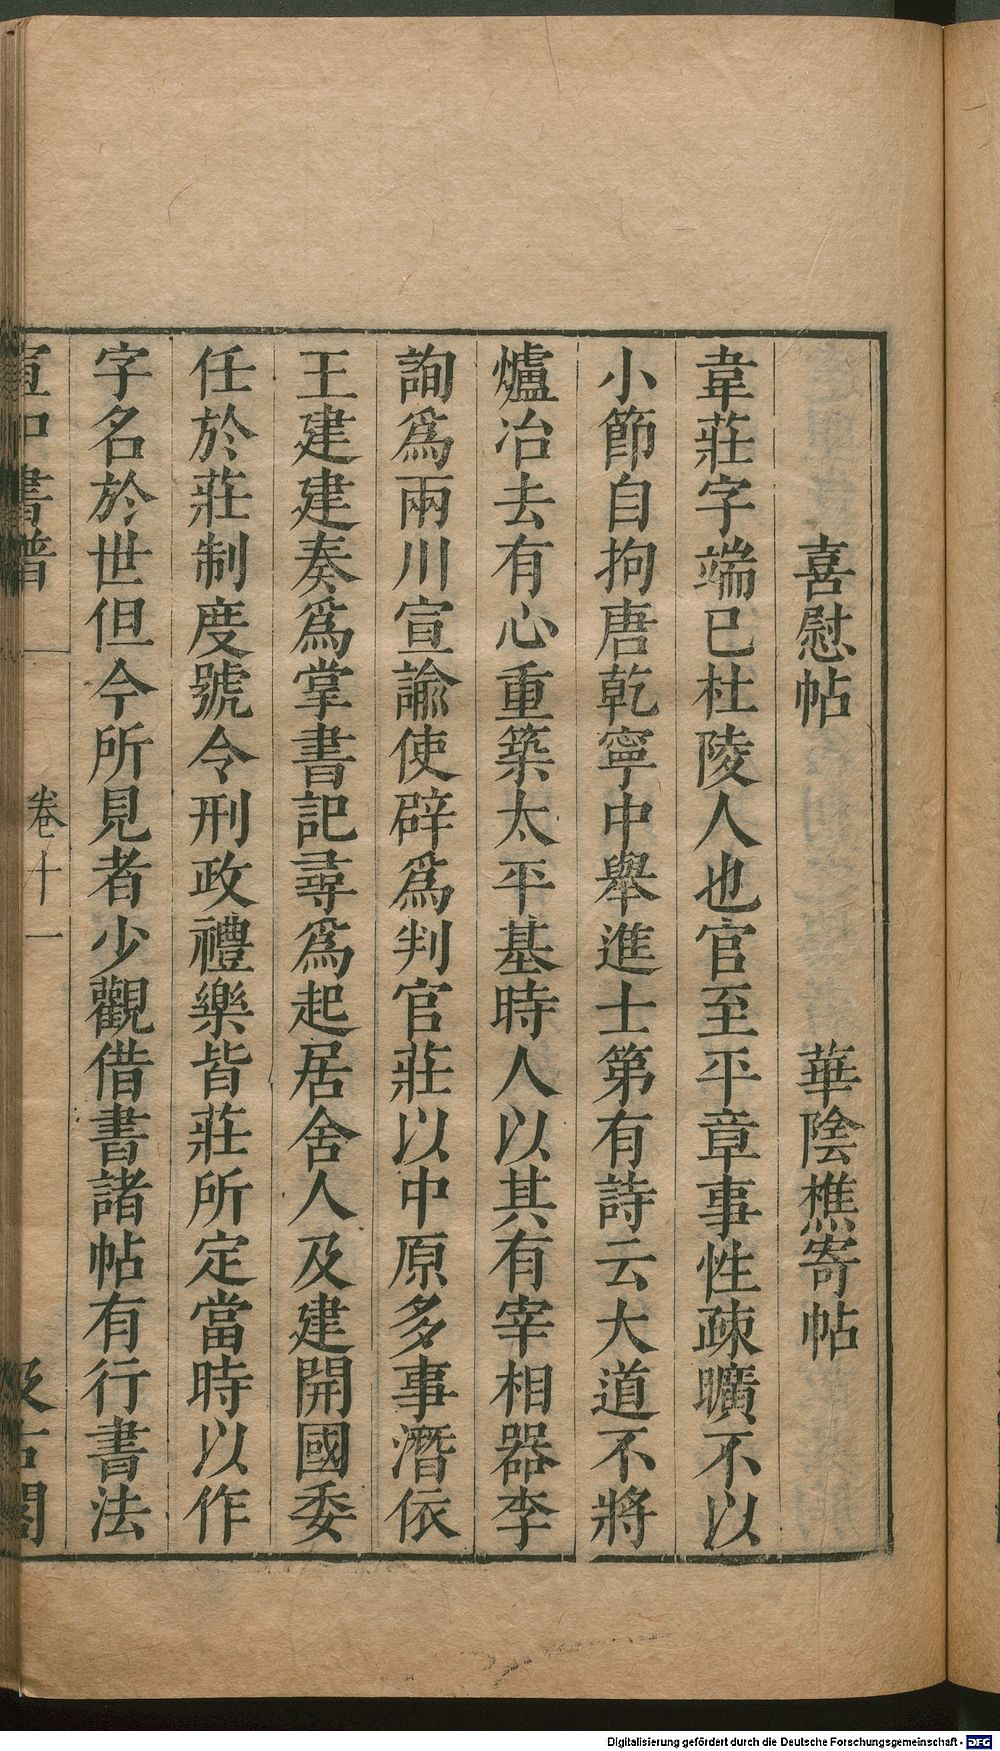 喜慰帖　華陰樵寄帖
韋莊字端已杜陵人也官至平章事性疎曠不以
小節自拘唐乾寧中舉進士第有詩云大道不將
爐冶去有心重築太平基時人以其有宰相器李
詢爲兩川宣諭使辟爲判官莊以中原多事潛依
王建建奏爲掌書記尋爲起居舍人及建開國委
任於莊制度號令刑政禮樂皆莊所定當時以作
字名於世但今所見者少觀借書諸帖有行書法
宣和書譜　卷十一　汲古閣
Digitalisierung gefördert durch die Deutsche Forschungsgemeinschaft - DFG